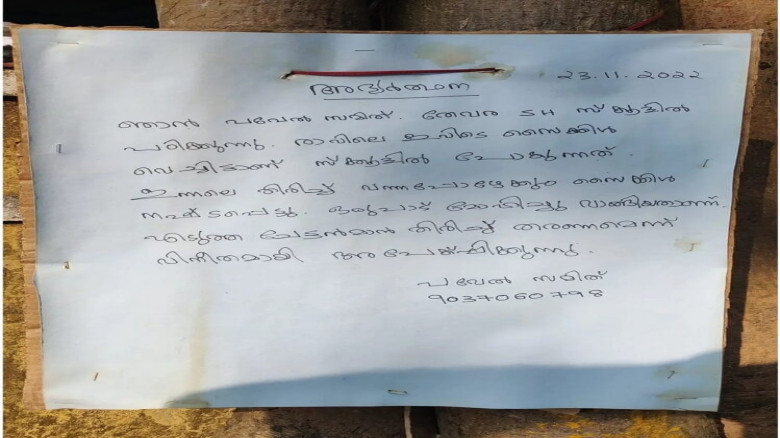 23.11.2022
അഭ്യർത്ഥന
ഞാൻ പവേൽ സമിത്. തേവര SH സ്കൂളിൽ
പഠിക്കുന്നു. രാവിലെ ഇവിടെ സൈക്കിൾ
വെച്ചിട്ടാണ് സ്കൂളിൽ പോകുന്നത്.
ഇന്നലെ തിരിച്ച് വന്നപ്പോഴേക്കും സൈക്കിൾ
നഷ്ടപ്പെട്ടു. ഒരുപാട് മോഹിച്ചു വാങ്ങിയതാണ്.
എടുത്ത ചേട്ടൻമാർ തിരിച്ച് തരണമെന്ന്
വിനീതമായി അപേക്ഷിക്കുന്നു.
പവേൽ സമിത്
9037060798